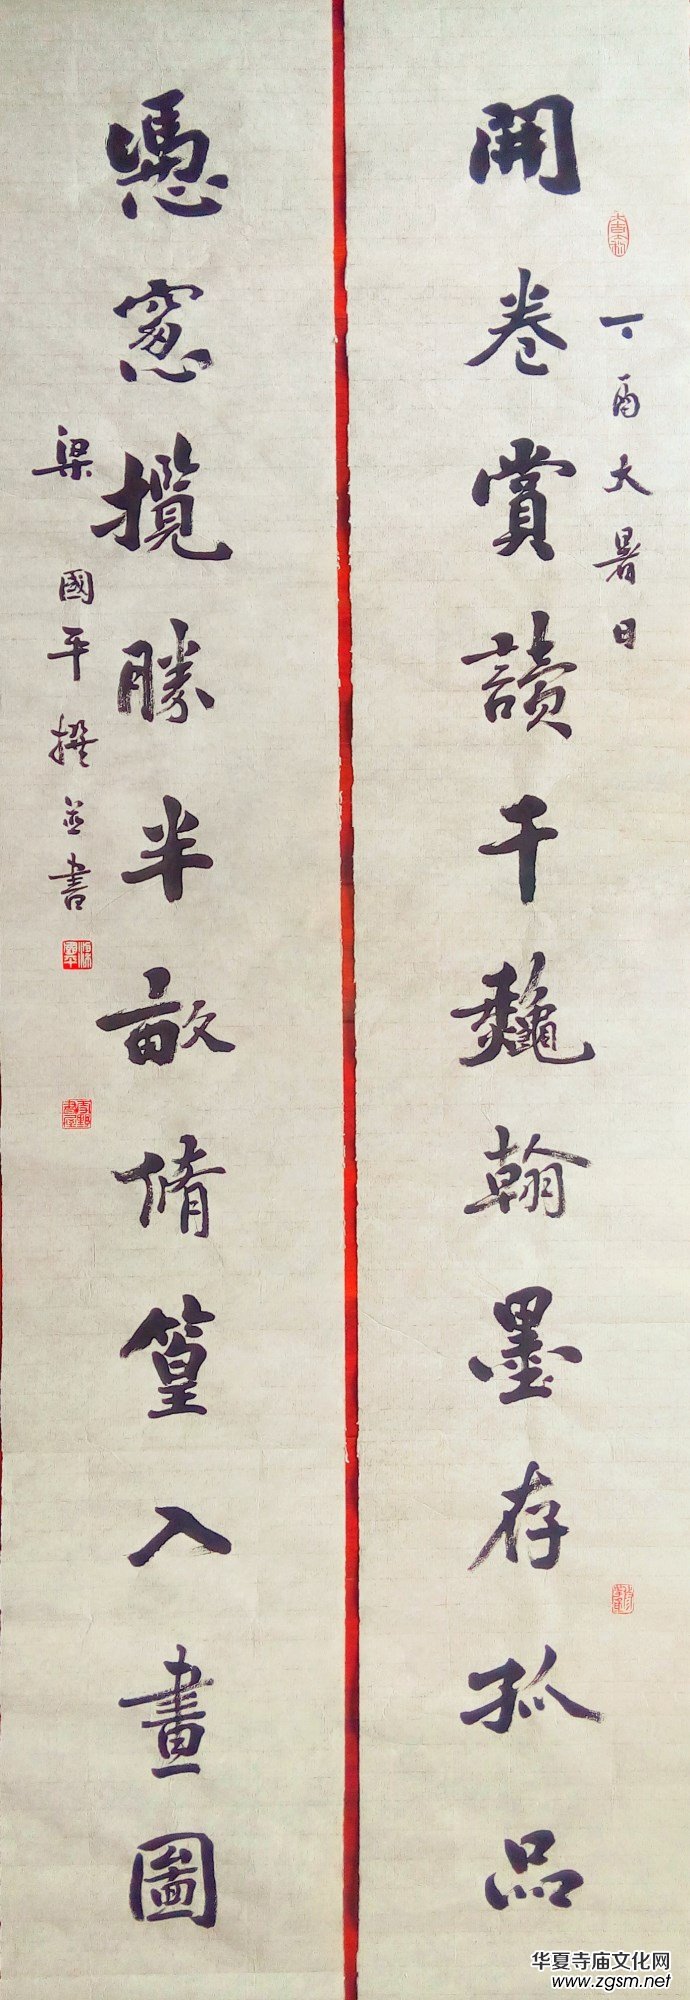 開卷賞讀千龝翰墨存孤品
丁酉大暑日
憑窓攬勝半畝脩篁入畫圖
梁國平撰並書
华夏寺庙文化网
www.zgsm.net